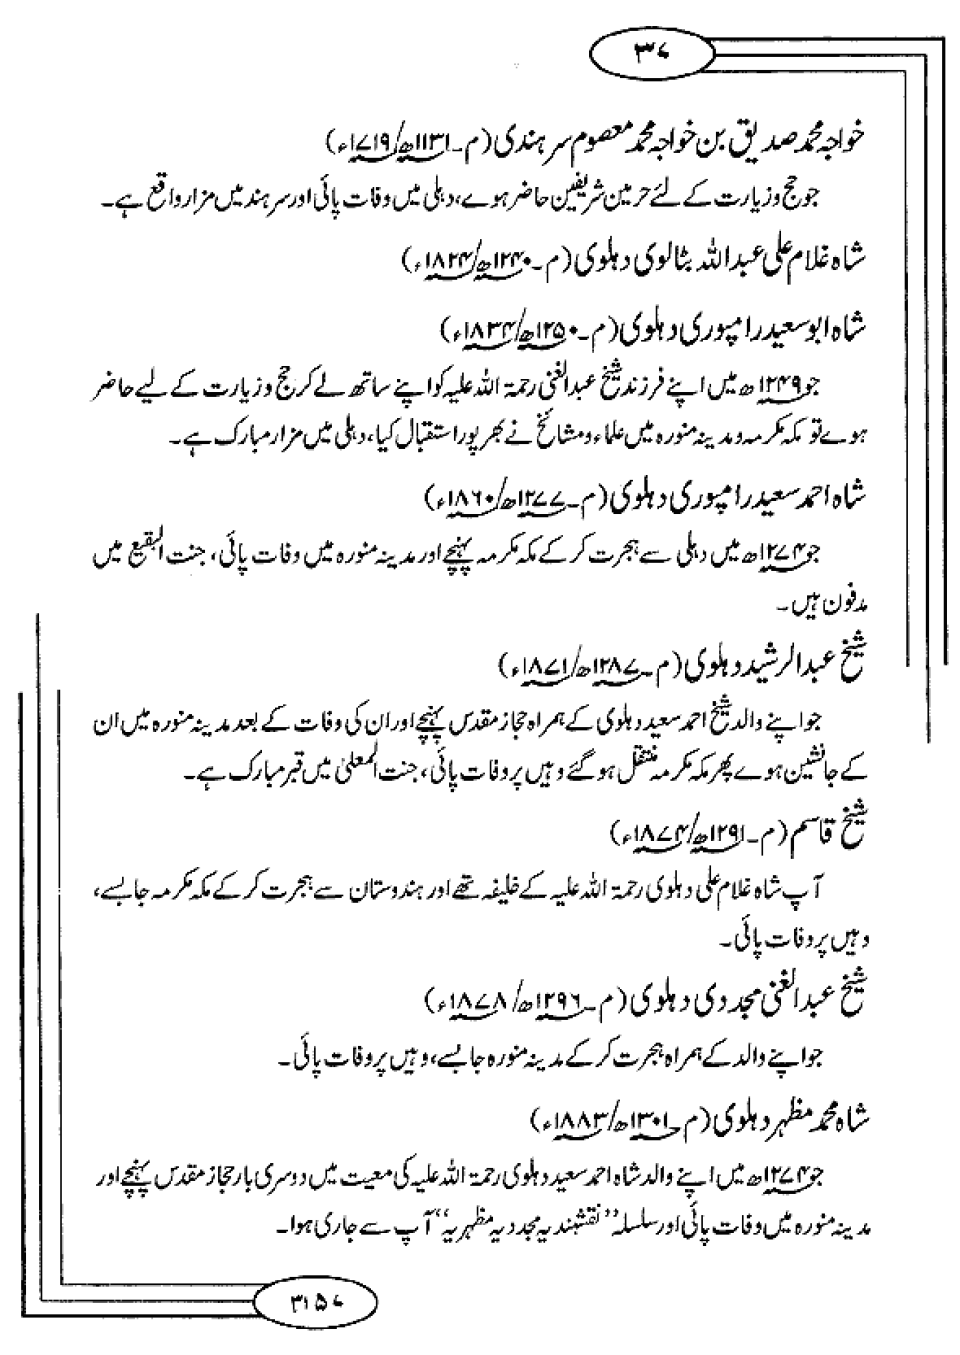 ۳۷
خواجہ محمد صدیق بن خواجہ محمد معصوم سرہندی (م۔۱۱۳۱ھ/۱۷۱۹ء)
جو حج و زیارت کے لئے حرمین شریفین حاضر ہوے، دہلی میں وفات پائی اور سرہند میں مزار واقع ہے۔
شاہ غلام علی عبداللہ بٹالوی دہلوی (م۔۱۲۴۰ھ/۱۸۲۴ء)
شاہ ابو سعید رامپوری دہلوی (م۔۱۲۵۰ھ/۱۸۳۴ء)
جو ۱۲۴۹ھ میں اپنے فرزند شیخ عبدالغنی رحمۃ اللہ علیہ کو اپنے ساتھ لے کر حج و زیارت کے لیے حاضر
ہوے تو مکہ مکرمہ و مدینہ منورہ میں علماء و مشائخ نے بھرپور استقبال کیا، دہلی میں مزار مبارک ہے۔
شاہ احمد سعید رامپوری دہلوی (م۔۱۲۷۷ھ/۱۸۶۰ء)
جو ۱۲۷۴ھ میں دہلی سے ہجرت کر کے مکہ مکرمہ پہنچے اور مدینہ منورہ میں وفات پائی، جنت البقیع میں
مدفون ہیں۔
شیخ عبدالرشید دہلوی (م۔۱۲۸۷ھ/۱۸۷۱ء)
جو اپنے والد شیخ احمد سعید دہلوی کے ہمراہ حجاز مقدس پہنچے اور ان کی وفات کے بعد مدینہ منورہ میں ان
کے جانشین ہوے پھر مکہ مکرمہ منتقل ہو گئے وہیں پر وفات پائی، جنت المعلیٰ میں قبر مبارک ہے۔
شیخ قاسم (م۔۱۲۹۱ھ/۱۸۷۴ء)
آپ شاہ غلام علی دہلوی رحمۃ اللہ علیہ کے خلیفہ تھے اور ہندوستان سے ہجرت کر کے مکہ مکرمہ جا بسے،
وہیں پر وفات پائی۔
شیخ عبدالغنی مجددی دہلوی (م۔۱۲۹۶ھ/۱۸۷۸ء)
جو اپنے والد کے ہمراہ ہجرت کر کے مدینہ منورہ جا بسے، وہیں پر وفات پائی۔
شاہ محمد مظہر دہلوی (م۔۱۳۰۱ھ/۱۸۸۳ء)
جو ۱۲۷۴ھ میں اپنے والد شاہ احمد سعید دہلوی رحمۃ اللہ علیہ کی معیت میں دوسری بار حجاز مقدس پہنچے اور
مدینہ منورہ میں وفات پائی اور سلسلہ ”نقشبندیہ مجددیہ مظہریہ“ آپ سے جاری ہوا۔
۳۱۵۷